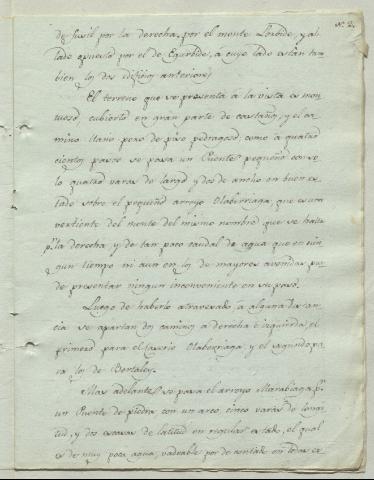 nº 2.
de fusil por la derecha, por el monte Lloide, y al
lado opuesto por el de Eguzbide, á cuyo lado están tam
bien los dos edificios anteriores.
El terreno que se presenta á la vista es mon
tuoso cubierto en gran parte de castaños, y el ca
mino llano pero de piso pedragoso; como á quatro
cientos pasos se pasa un Puente pequeño con so
lo quatro varas de largo y dos de ancho en buen es
tado sobre el pequeño arroyo Olaberriaga, que es una
vertiente del monte del mismo nombre que se halla
pr. la derecha, y de tan poco caudal de agua que en nin
gun tiempo ni aun en los de mayores avenidas pue
de presentar ningun inconveniente en su paso.
Luego de haberlo atravesado á alguna distan
cia se apartan dos caminos á derecha é izquierda, el
primero para el caserio Olaberriaga y el segundo pa
ra los de Bertaley.
Mas adelante se pasa el arroyo Marabiaga pr.
un Puente de piedra con un arco, cinco varas de longi
tud, y dos escasas de latitud en regular estado, el qual
es de muy poca agua, vadeable por de contado en todas es